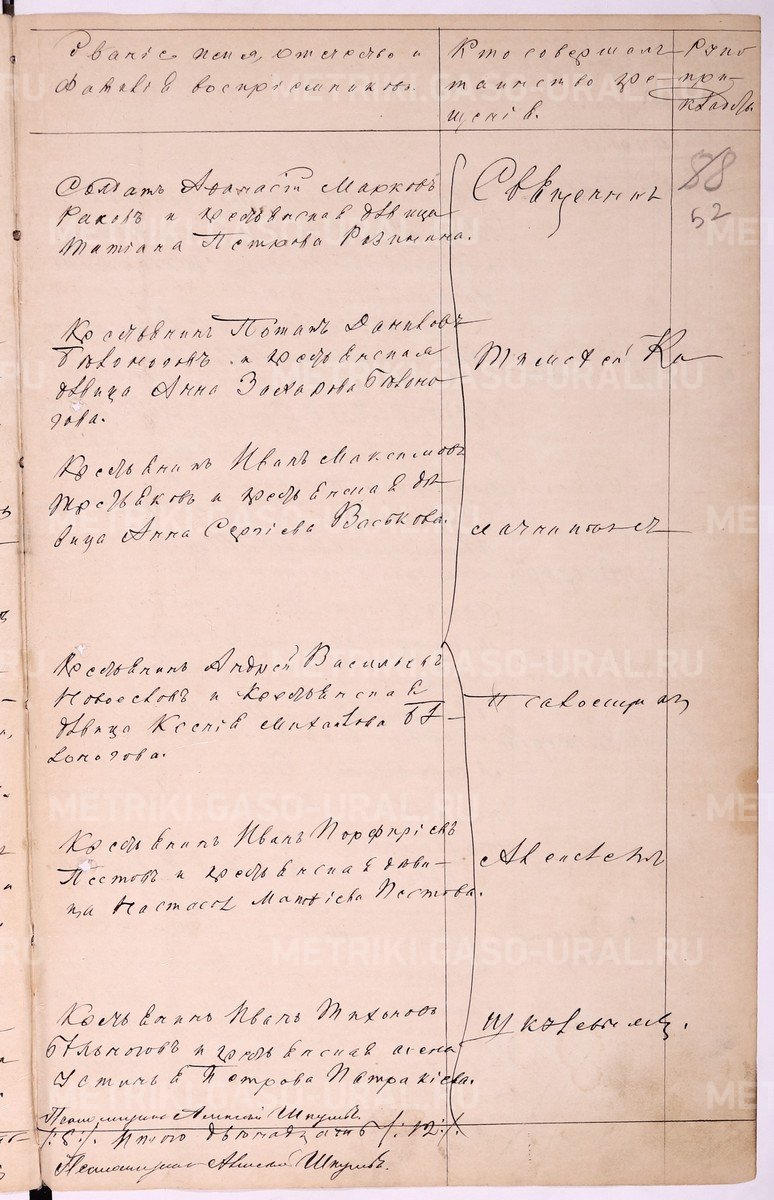 Званіе, имя, отчество и
фамилія воспріемниковъ.
Кто совершалъ
таинство кре-
щенія.
Руко
при-
кладст
88
52
Солдатъ Аѳанасій Марковъ
Раковъ и крестьянская дѣвица
Татіана Петрова
Крестьянинъ Потапъ Даниловъ
Бѣлоносовъ и крестьянская
дѣвица Анна Захарова Бѣлоно
сова.
Крестьянинъ Иванъ Максимовъ
Третьяковъ и крестьянская дѣ
вица Анна Сергіева Васькова.
Крестьянинъ Андрей Васильевъ
Новоселовъ и крестьянская
дѣвица Ксенія Михайлова Бѣ-
лоногова.
Крестьянинъ Иванъ Порфирьевъ
Пестовъ и крестьянская дѣви-
ца Настасья Матвіева Пестова.
Крестьянинъ Иванъ Тихоновъ
Бѣльноговъ и крестьянская жена
Устинья Петрова Патракіева.
Священникъ
Тимофей Ка
лачниковъ съ
Псаломщикомъ
Алексѣемъ
Псаломщикъ Алексѣй
Итого двенадцать /:12:/.
Псаломщикъ Алексѣй